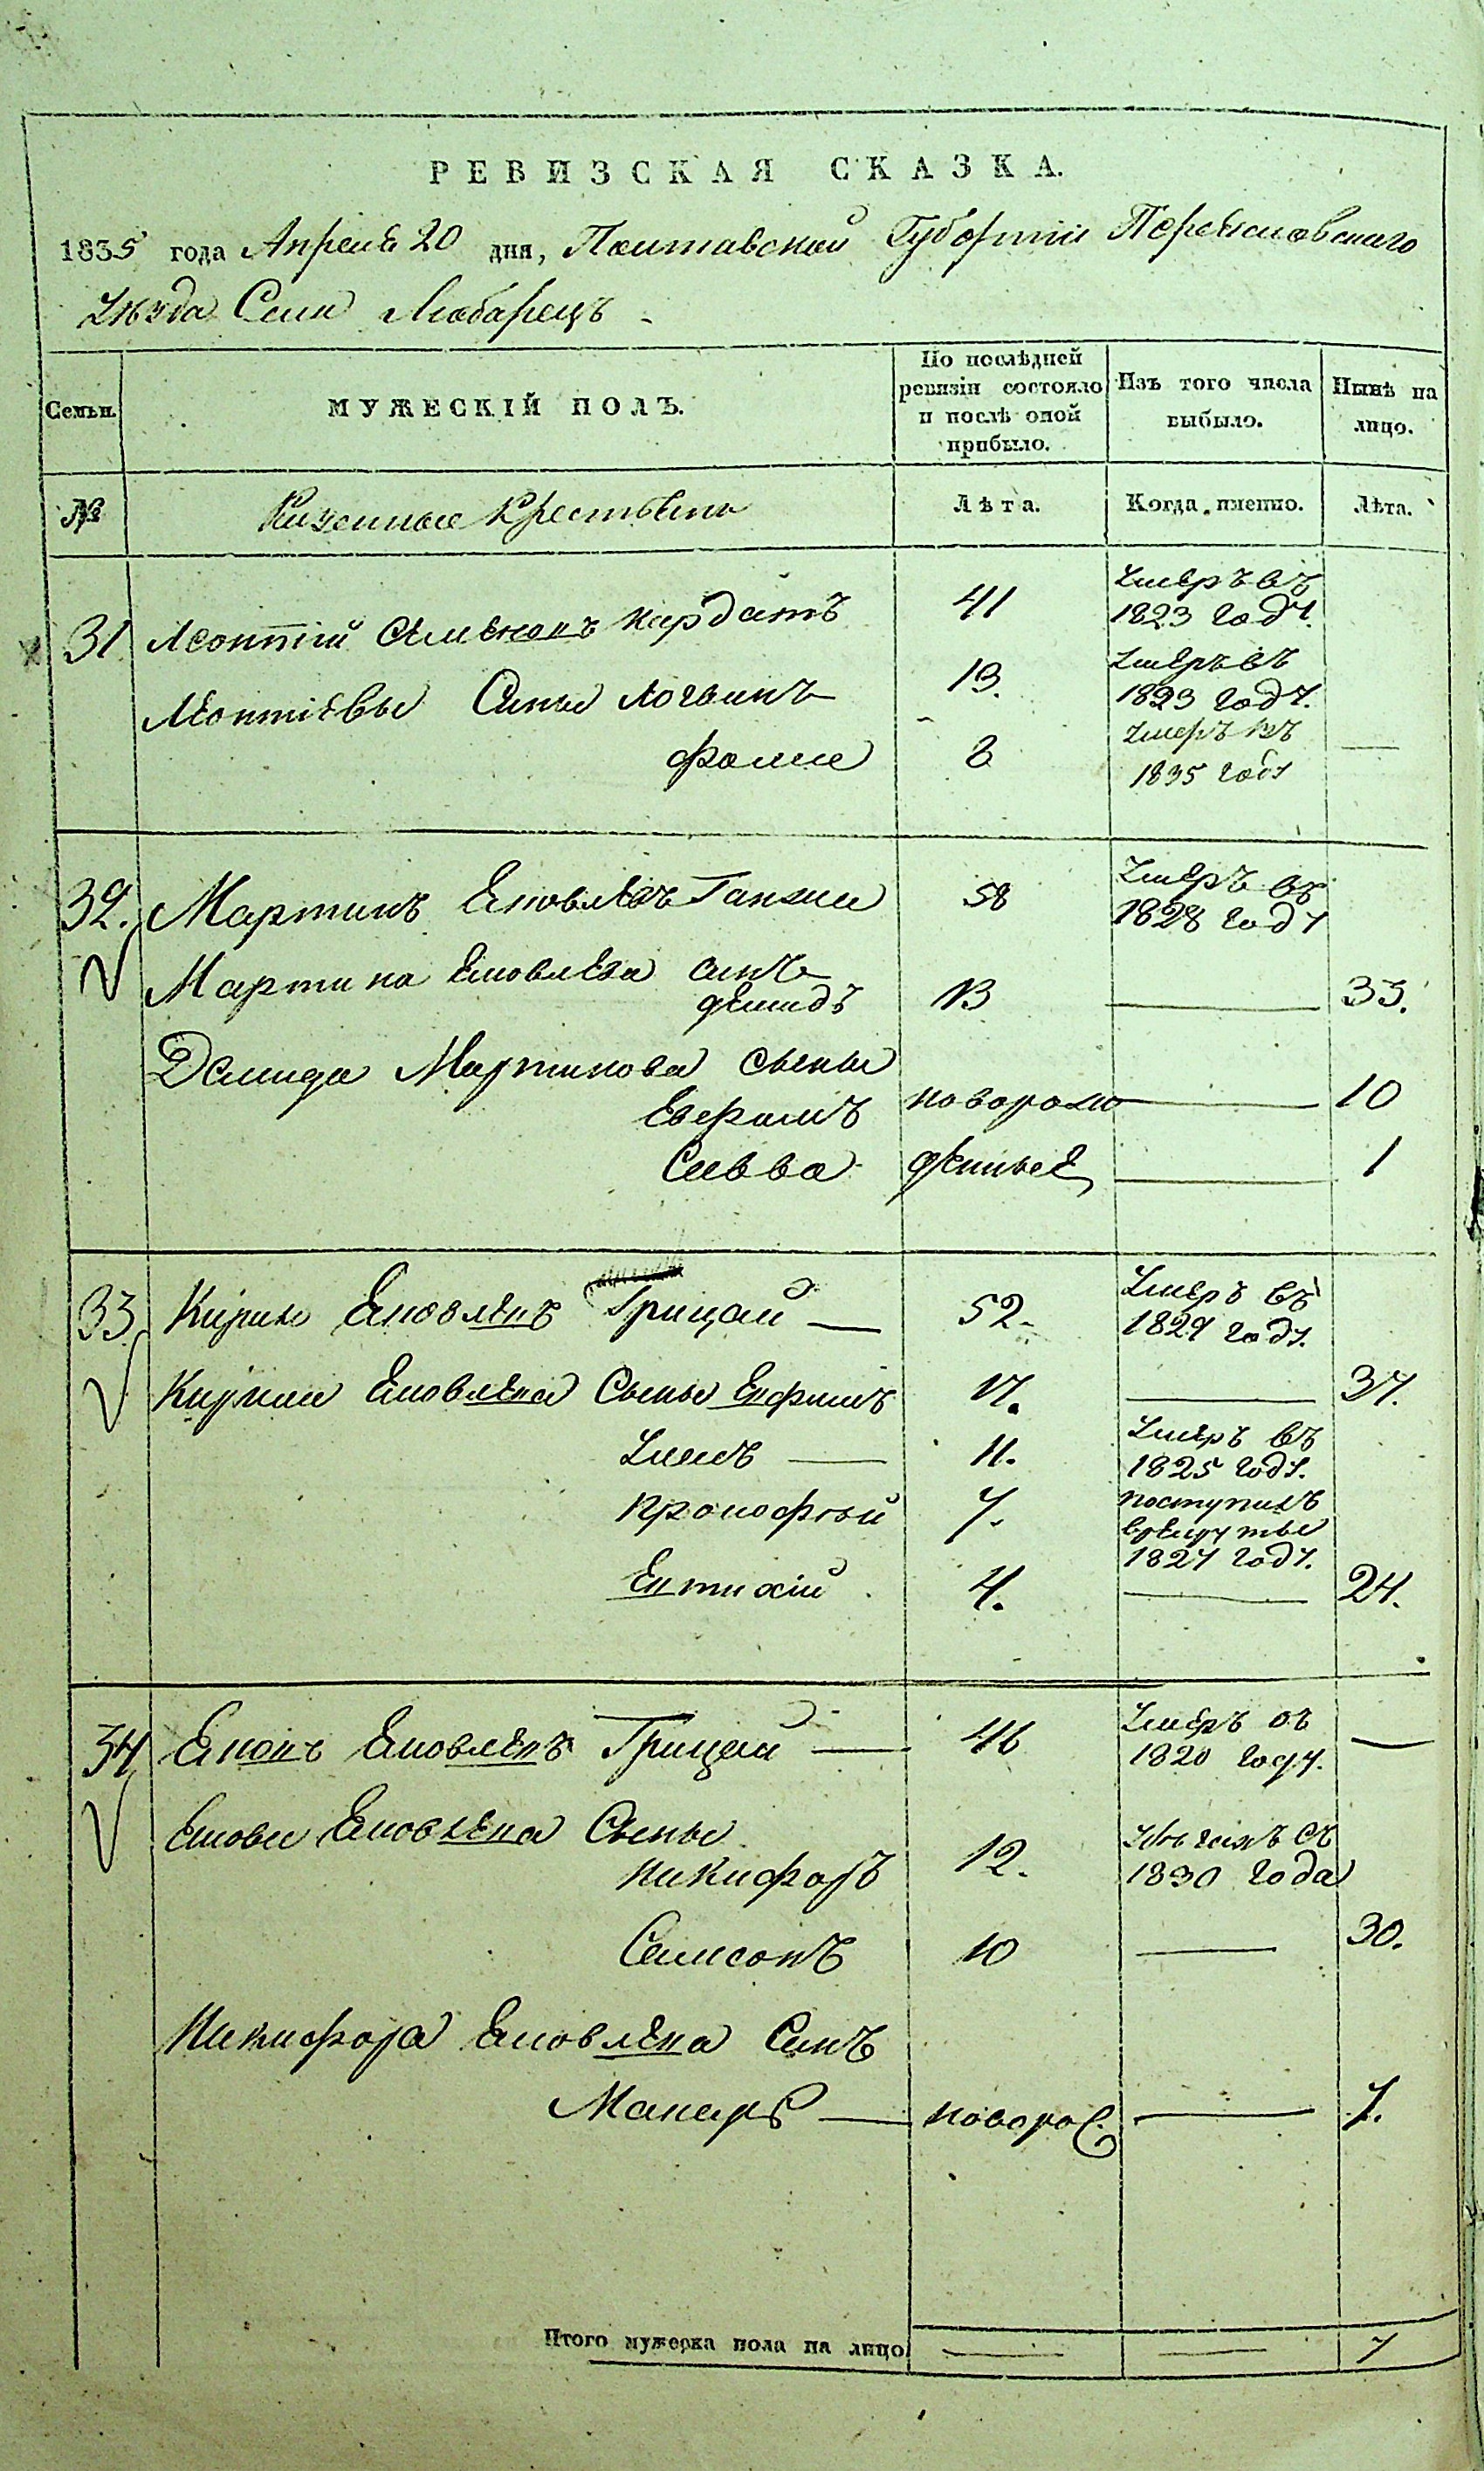 РЕВИЗСКАЯ СКАЗКА.
1835 года Апреля 20 дня, Полтавской Губерніи Переяславского
Уѣзда Села Любарецъ
Семьи.
МУЖЕСКІЙ ПОЛЪ.
По послѣдней ревизіи состояло и послѣ оной прибыло.
Изъ того числа выбыло.
Нынѣ на лицо.
№
Казенные Крестьяне
Лѣта.
Когда именно.
Лѣта.
31 Леонтій Семеновъ Кардашъ 41 Умеръ въ 1823 году.
Леонтіевы Сыны Логвинъ 13. Умеръ въ 1823 году.
Фома 8 Умеръ въ 1835 году —
32. Мартинъ Яковлевъ Ганжа 58 Умеръ въ 1828 году
Мартина Яковлева сынъ
Демидъ 13 — 33.
Демида Мартинова сыны
Евфримъ новорож — 10
Савва денные — 1
33. Кирило Яковлевъ Грицай — 52. Умеръ въ 1829 году.
Кирила Яковлева Сыны Евфимъ 17. — 37.
— 11. Умеръ въ 1825 году.
Прокофий 7. поступилъ в рекруты 1827 году.
Евтихій 4. — 24.
34 Яковъ Яковлевъ Грицай — 46 Умеръ въ 1820 году. —
Якова Яковлева Сыны
Никифоръ 12. съ 1830 года
Самсонъ 10 — 30.
Никифора Яковлева Сынъ
Макаръ — новорож. — 7.
Итого мужеска пола на лицо — — 7